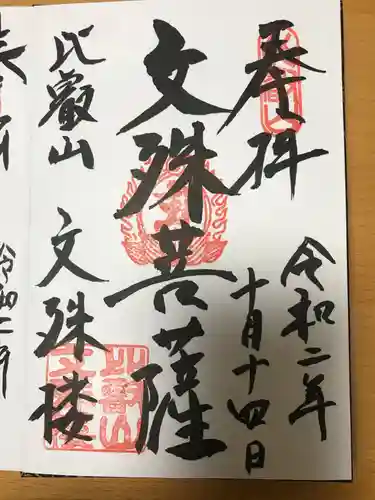 奉拝
令和二年
十月十四日
文殊菩薩
比叡山
文殊楼
比叡山
令和二年